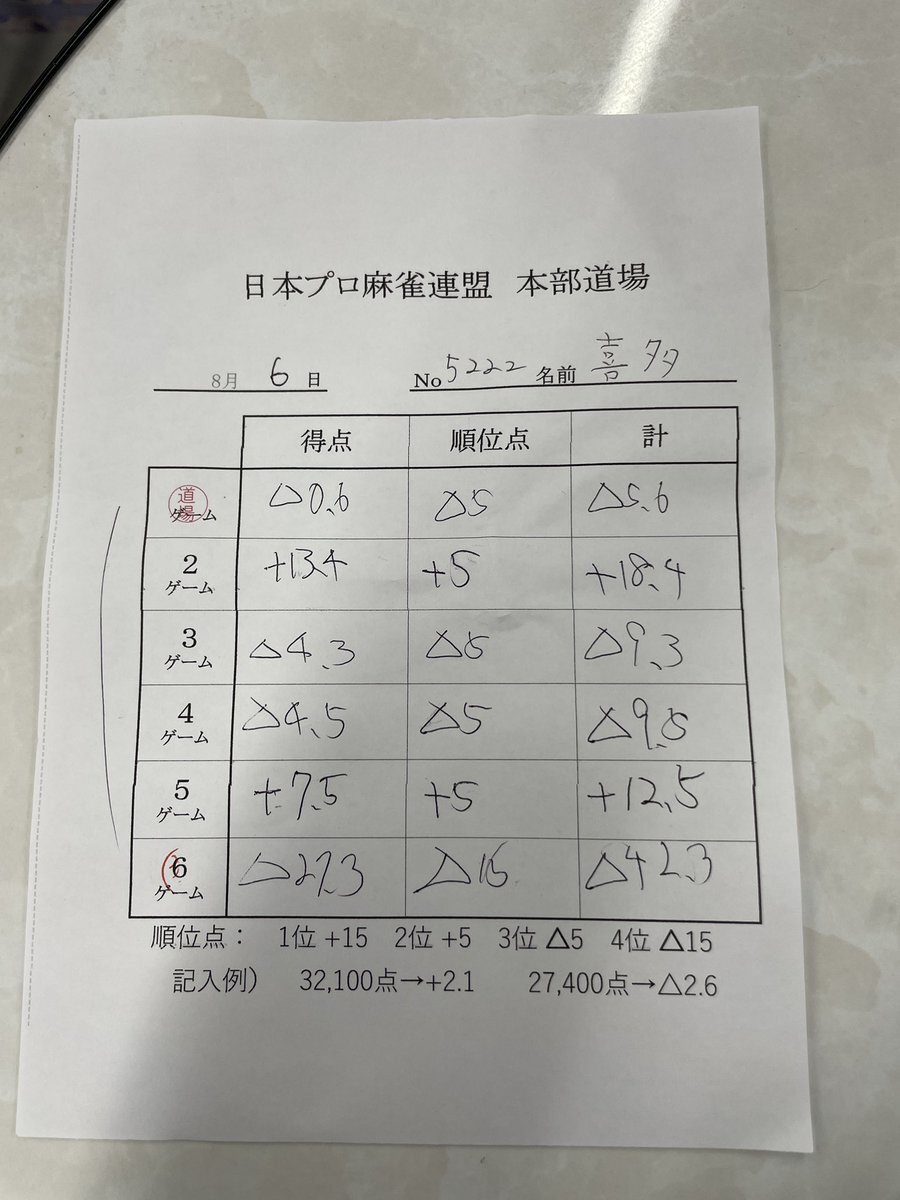 日本プロ麻雀連盟 本部道場
8月 6 日 No 5222 名前 喜多
得点 順位点 計
道場 ゲーム △0.6 △5 △5.6
2 ゲーム +13.4 +5 +18.4
3 ゲーム △4.3 △5 △9.3
4 ゲーム △4.5 △5 △9.5
5 ゲーム +7.5 +5 +12.5
6 ゲーム △27.3 △15 △42.3
順位点： 1位 +15 2位 +5 3位 △5 4位 △15
記入例） 32,100点→+2.1 27,400点→△2.6